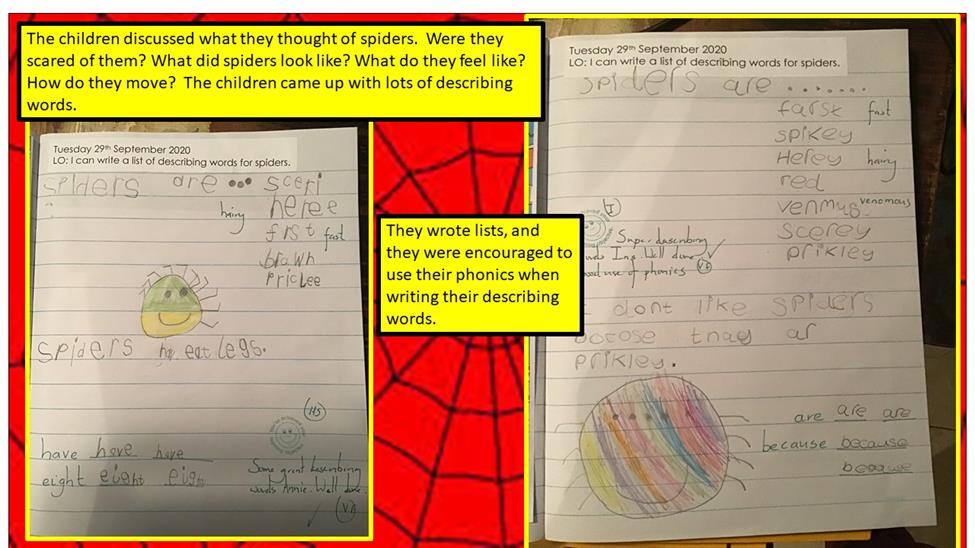 The children discussed what they thought of spiders. Were they
scared of them? What did spiders look like? What do they feel like?
How do they move? The children came up with lots of describing
words.
Tuesday 29th September 2020
LO: I can write a list of describing words for spiders.
spiders are ... sceri
hairy heree
first fast
brawn
priclee
spiders hav eat legs.
HS
have have have
eight eight eight
Some great describing
words Annie. Well done.
They wrote lists, and
they were encouraged to
use their phonics when
writing their describing
words.
Tuesday 29th September 2020
LO: I can write a list of describing words for spiders.
spiders are .......
farst fast
spikey
Herey hairy
red
venmus venomous
scerey
prikley
I
Super describing
words Ina. Well done
good use of phonics
I dont like spiders
becose thay ar
prikley.
are are are
because because
because